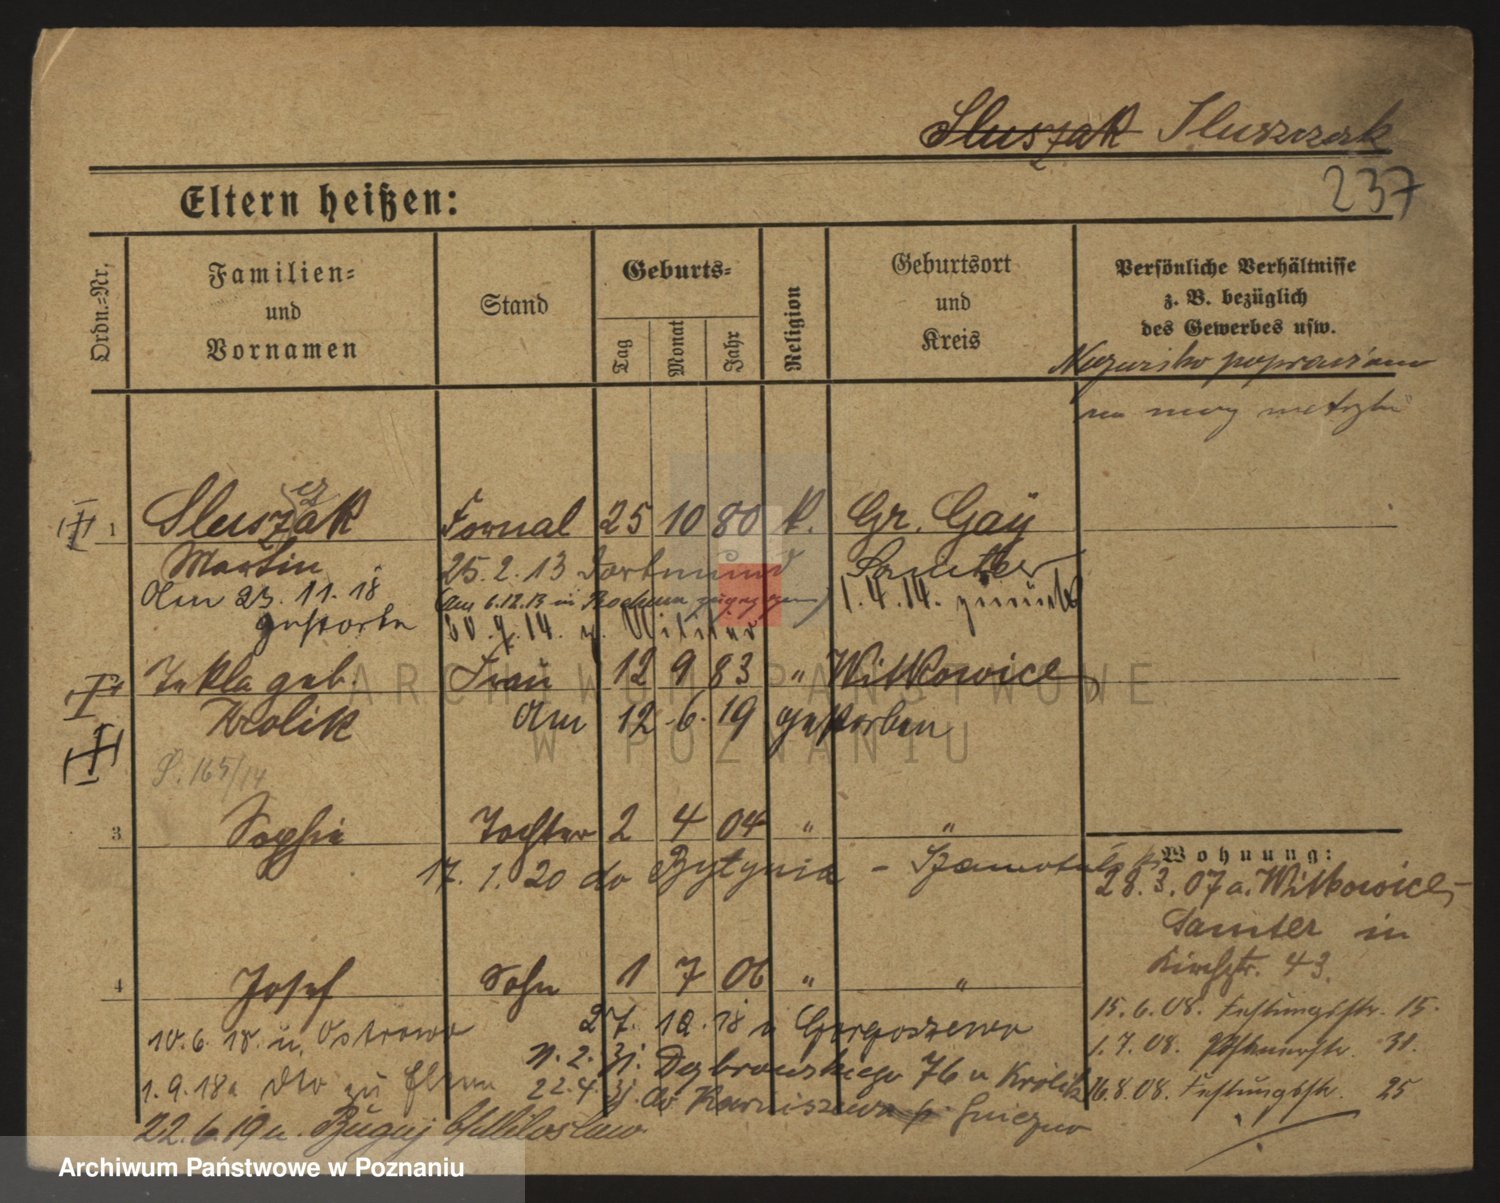 Sluszak Sluszczak
237
Eltern heißen:
Ordn.-Nr.
Familien-
und
Vornamen
Stand
Geburts-
Tag
Monat
Jahr
Religion
Geburtsort
und
Kreis
Persönliche Verhältnisse
z. B. bezüglich
des Gewerbes usw.
Nazwisko poprawiono
na mocy metryki
cz
1 Sluszak Fornal 25 10 80 k. Gr. Gay
Martin 25. 2. 13 Dortmund Samter
Am 23. 11. 18 (Am 6.12.13 in Bochum zugezogen) 1. 4. 14. zurück
gestorben 14. Militär
Tekla geb. Frau 12 9 83 " Witkowice
Krolik Am 12. 6. 19 gestorben
S. 165/14
3 Sophie Tochter 2 4 04 " "
17. 1. 20 do Bytynia - Szamotuły
Wohnung:
28. 3. 07 a. Witkowice,
Samter in
Kirchstr. 43.
4 Josef Sohn 1 7 06 " "
15. 6. 08. Festungsstr. 15.
10. 6. 18. n. Ostrowo 27. 10. 18 Gorgoszewo
1. 7. 08. 31.
11. 2. 31. Dąbrowskiego 76 u Królik
1. 9. 18 zu Eltern 22. 4. 31. do Karniszewa p. Gniezno
16. 8. 08. Festungsstr. 25
22. 6. 19 n. Bugaj Miloslaw
ARCHIWUM PAŃSTWOWE
W POZNANIU
Archiwum Państwowe w Poznaniu